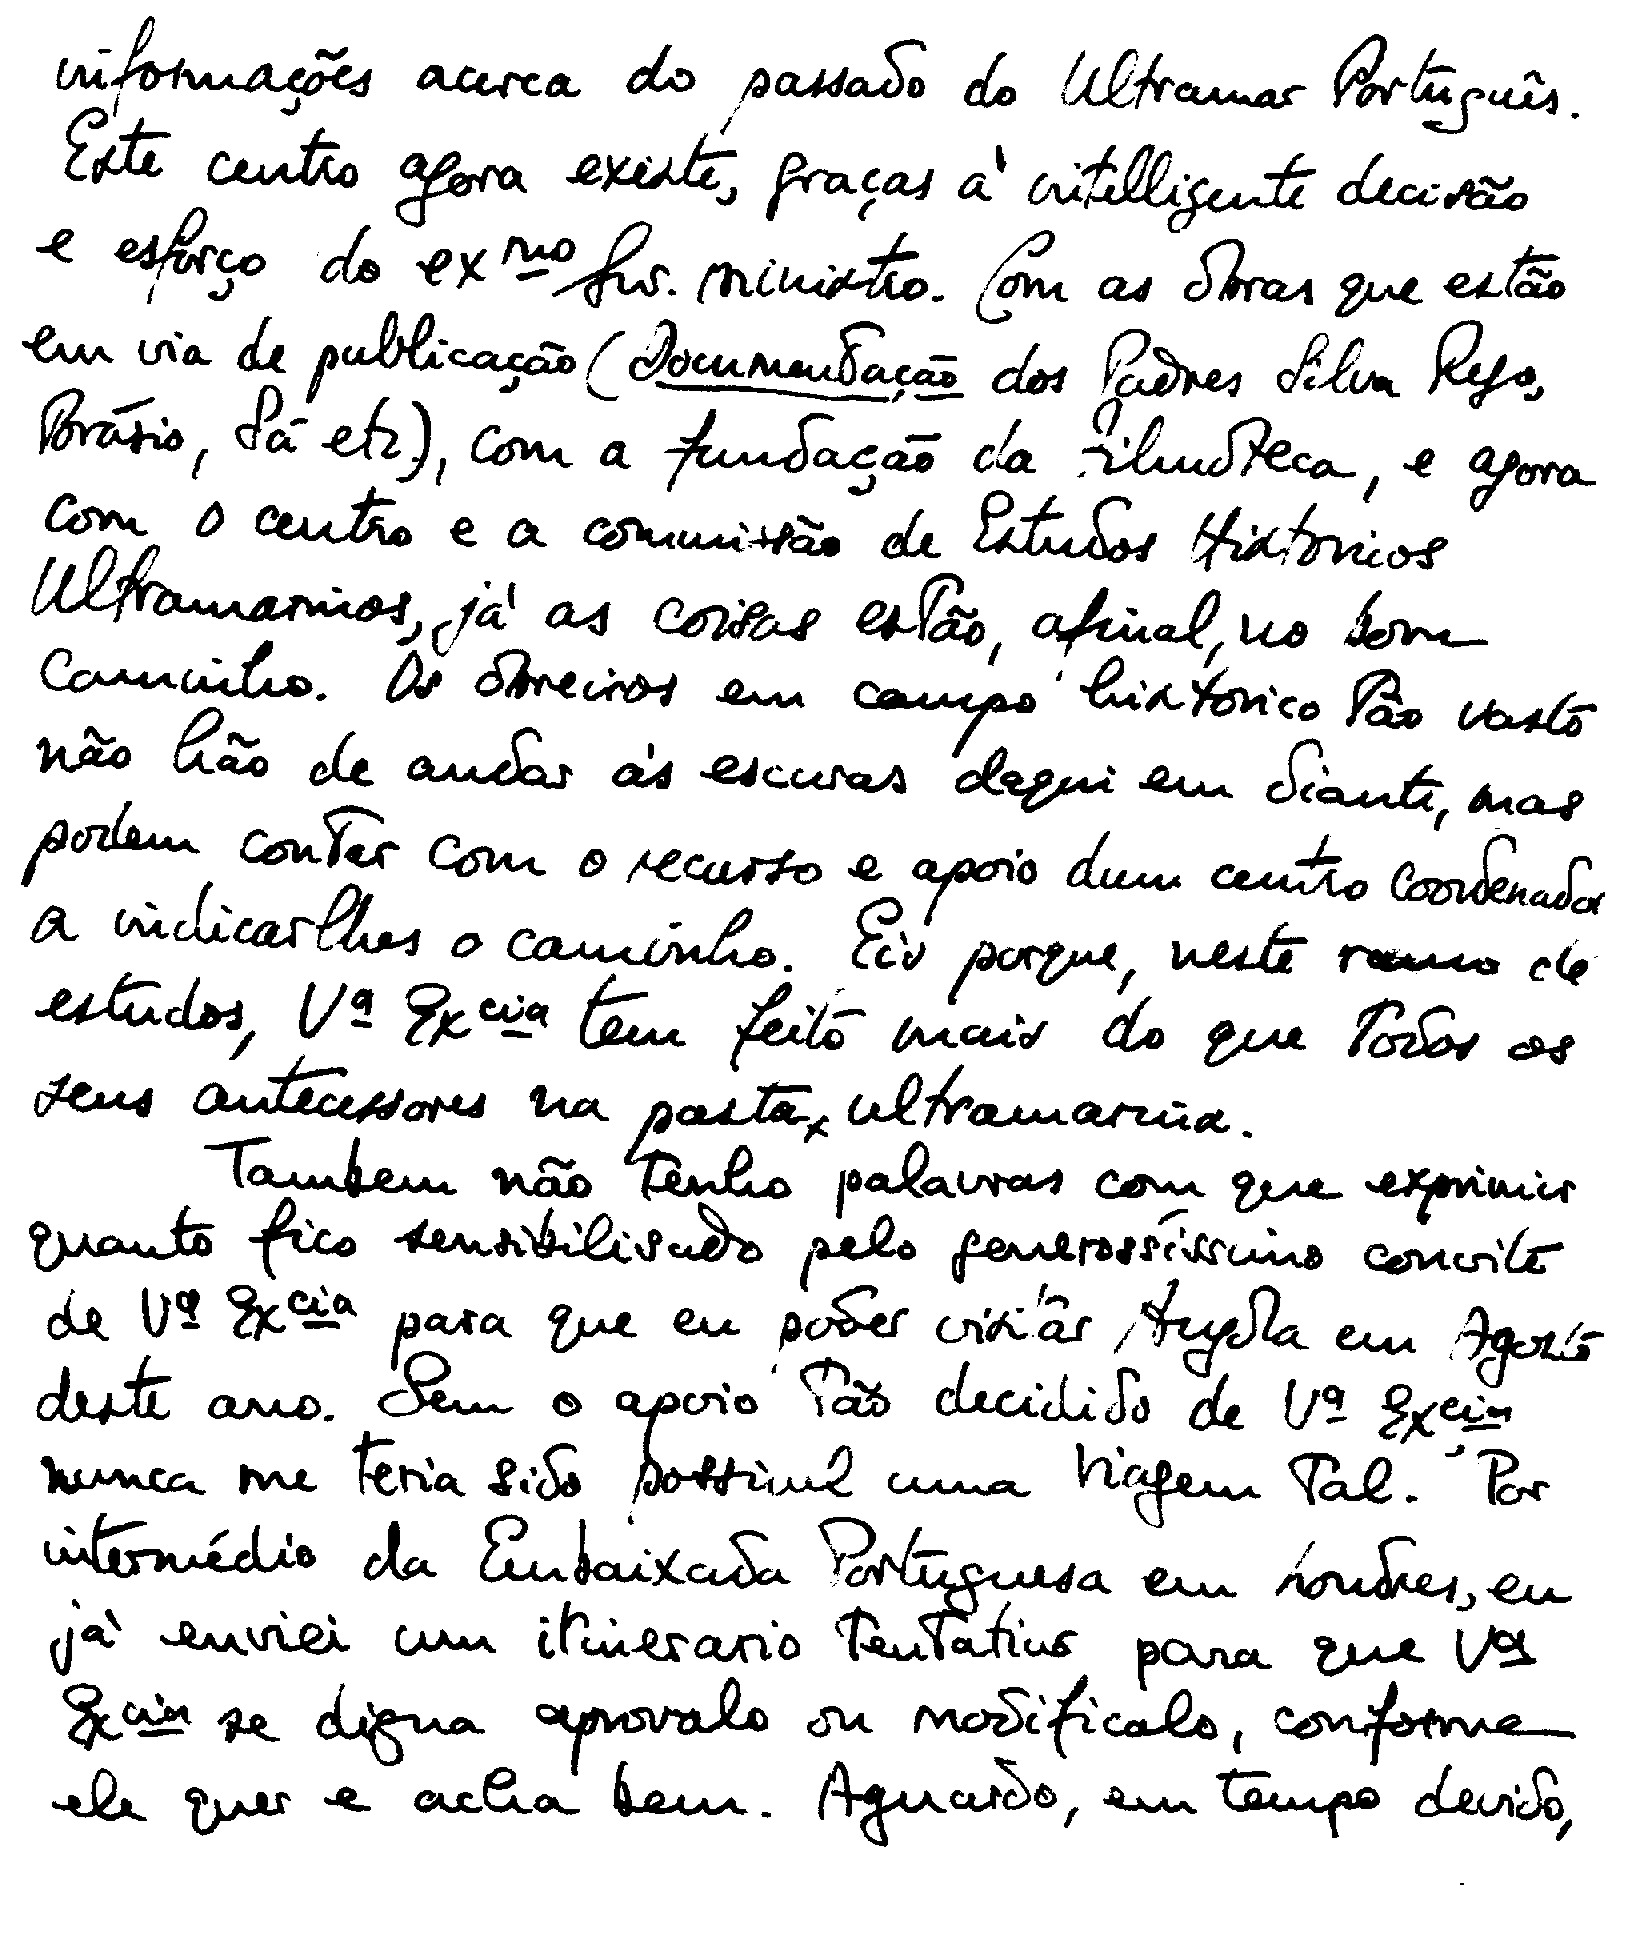 informações acerca do passado do Ultramar Português.
Este centro agora existe, graças á intelligente decisão
e esforço do exmo Snr. ministro. Com as obras que estão
em via de publicação (Documentação dos Padres Silva Rego,
Brásio, Sá etc.), com a fundação da Filmoteca, e agora
com o centro e a comissão de Estudos Historicos
Ultramarinos, já as coisas estão, afinal, no bom
caminho. Os obreiros em campo historico tão vasto
não hão de andar ás escuras daqui em diante, mas
podem contar com o recurso e apoio dum centro coordenador
a indicarlhes o caminho. Eis porque, neste ramo de
estudos, Vª Excia tem feito mais do que todos os
seus antecessores na pasta ultramarina.
Tambem não tenho palavras com que exprimir
quanto fico sensibilisado pelo generossíssimo convite
de Vª Excia para que eu poder visitar Angola em Agosto
deste ano. Sem o apoio tão decidido de Vª Excia
nunca me teria sido possivel uma viagem tal. Por
intermédio da Embaixada Portuguesa em Londres, eu
já enviei um itinerario tentativo para que Vª
Excia se digna aprovalo ou modificalo, conforme
ele quer e acha bem. Aguardo, em tempo devido,